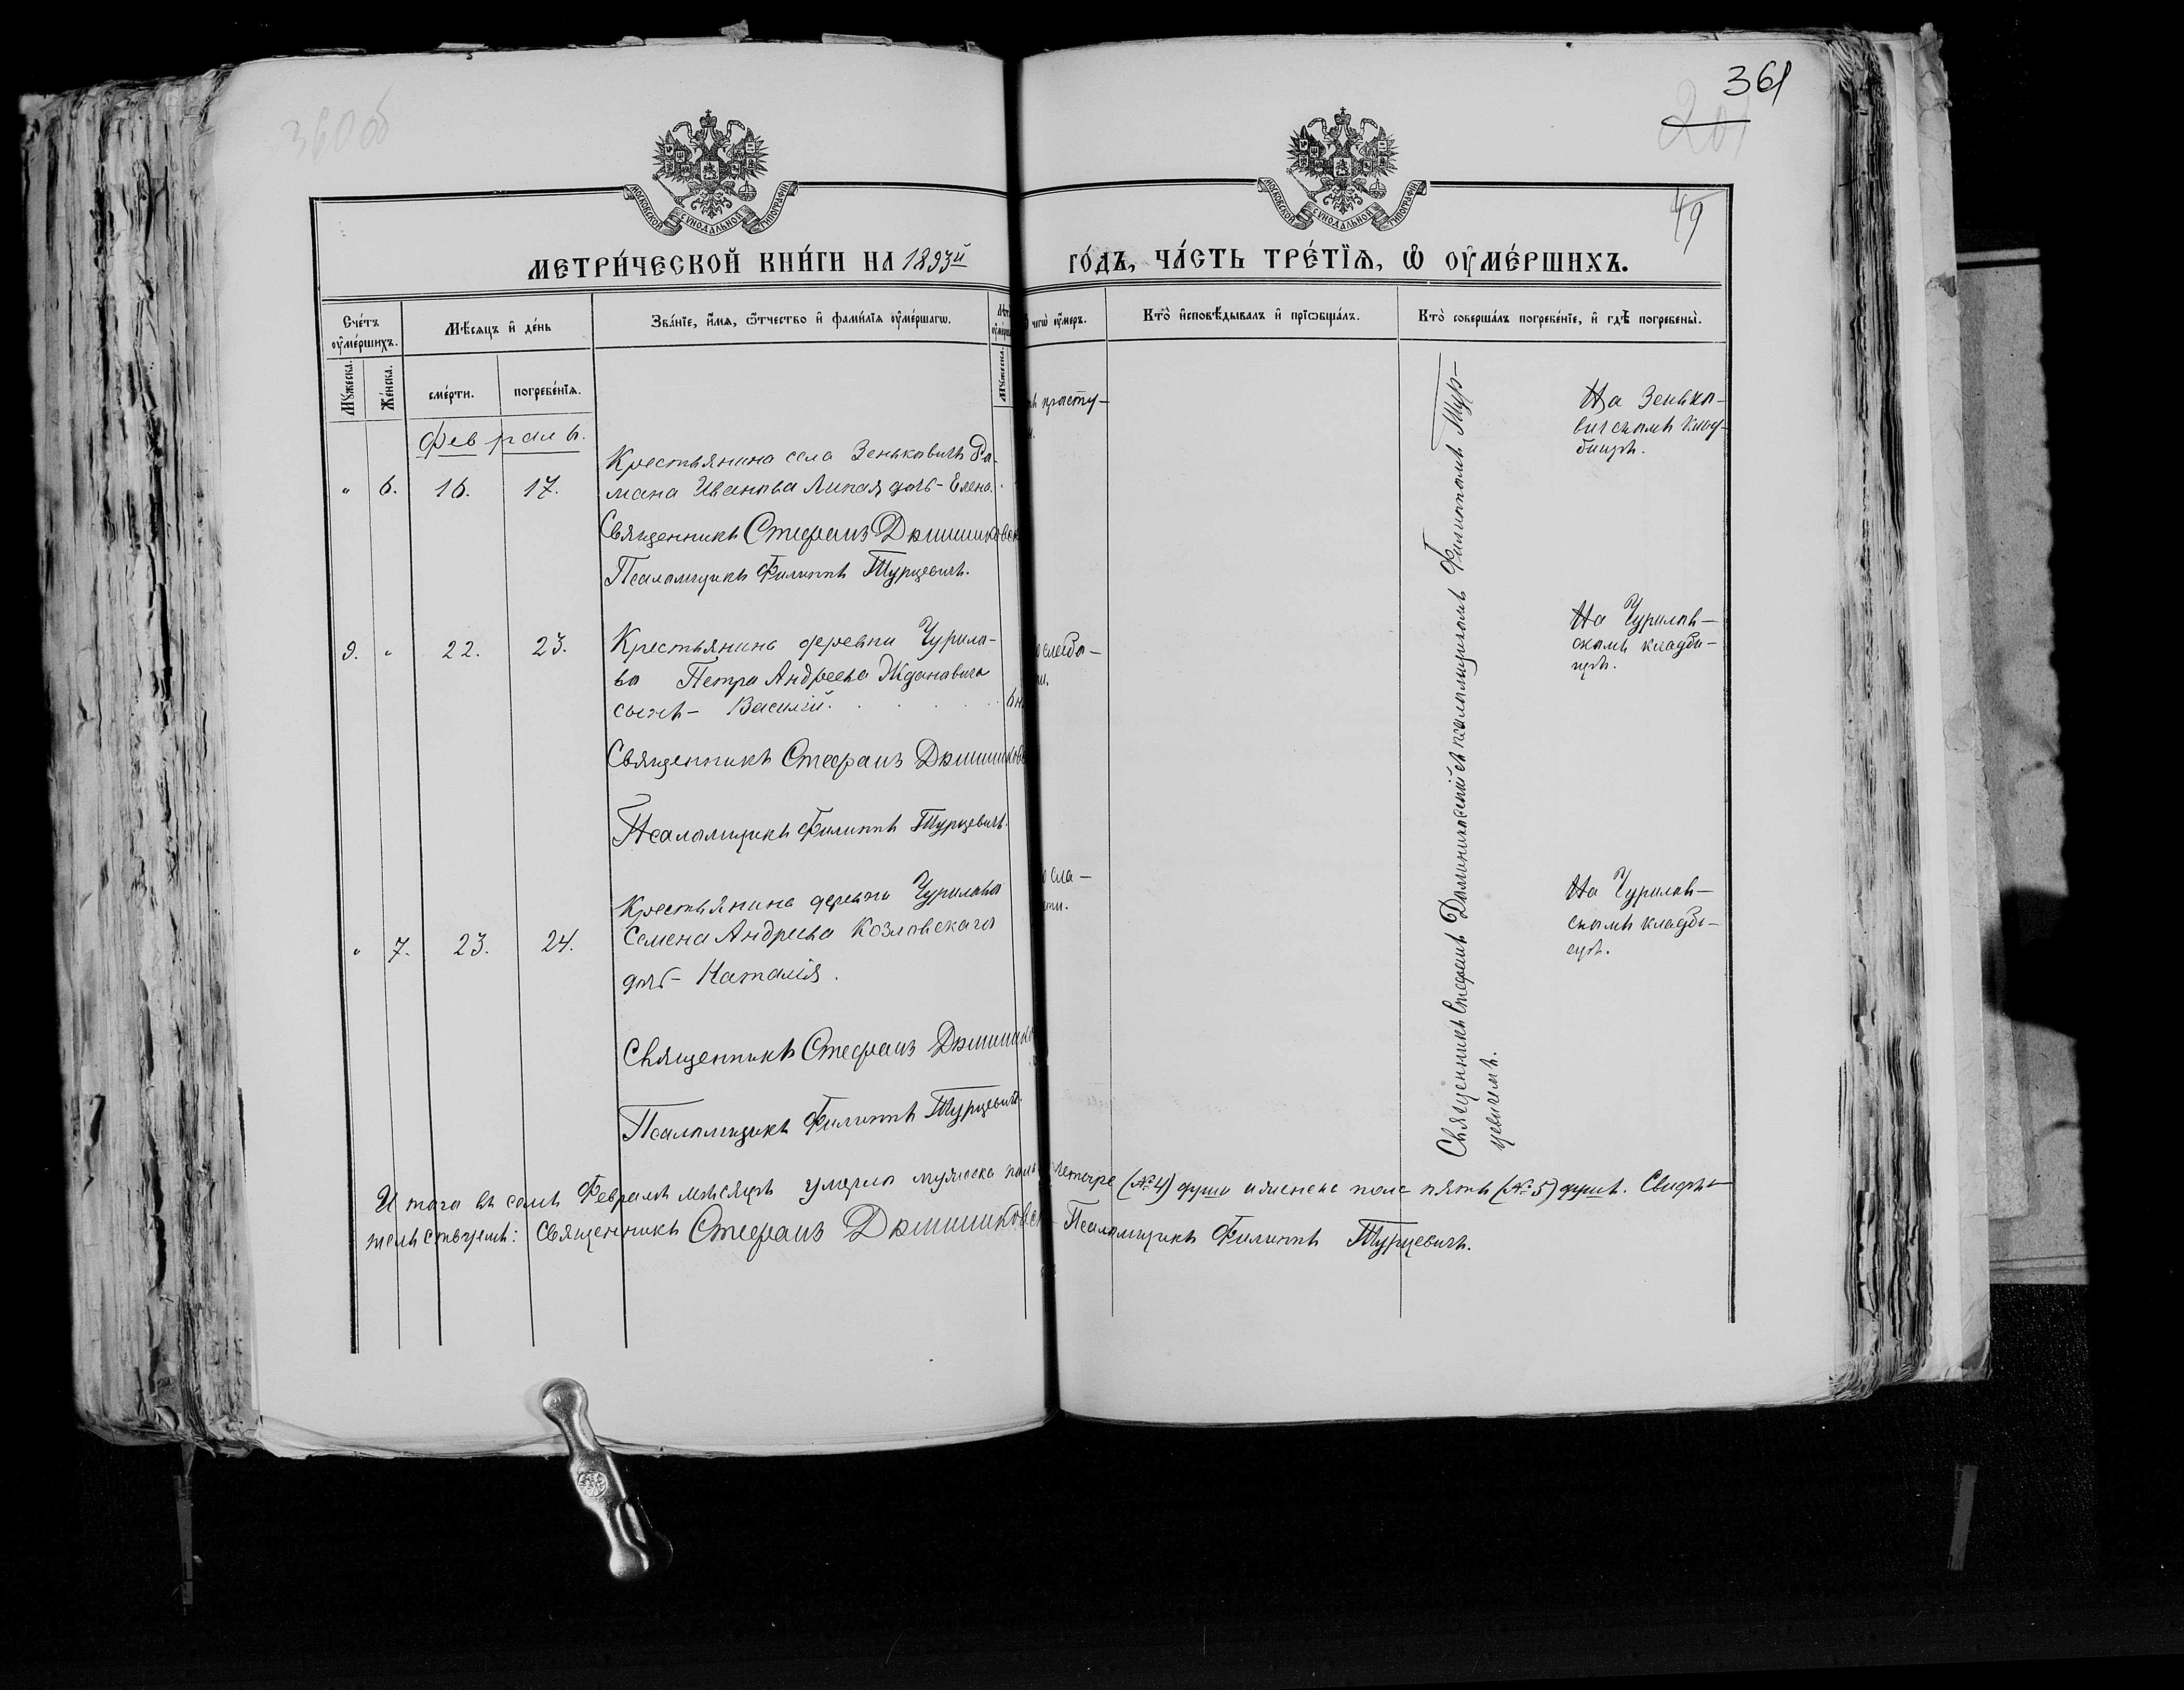 360об
361
201
49
МОСКОВСКОЙ СѴНОДАЛЬНОЙ ТИПОГРАФІИ
МОСКОВСКОЙ СѴНОДАЛЬНОЙ ТИПОГРАФІИ
МЕТРИ́ЧЕСКОЙ КНИ́ГИ НА 1893й
ГО́ДЪ, ЧА́СТЬ ТРЕ́ТЇѦ, Ѽ ОУ҆МЕ́РШИХЪ.
Сче́тъ оу҆ме́ршихъ.
Мꙋжеска.
Же́нска.
Мѣ́сѧцъ и҆ де́нь
сме́рти.
погребе́нїѧ.
Зва́нїе, и҆́мѧ, ѻ҆́тчество и҆ фами́лїѧ оу҆ме́ршагѡ.
Мꙋжеска.
чегѡ̀ оу҆́меръ.
Кто̀ и҆сповѣ́дывалъ и҆ прїѡбща́лъ.
Кто̀ соверша́лъ погребе́нїе, и҆ гдѣ̀ погребены̀.
Февраль.
" 6. 16. 17.
Крестьянина села Зеньковичъ Ро-
мана Иванова Липая дочь - Елена.
Священникъ Стефанъ
Псаломщикъ Филиппъ Турцевичъ.
просту-
На Зенько-
вичскомъ клад-
бищѣ.
9. " 22. 23.
Крестьянина деревни Чурило-
во Петра Андреева Ждановича
сынъ - Василій.
Священникъ Стефанъ
Псаломщикъ Филиппъ Турцевичъ.
На Чурилов-
скомъ кладби-
щѣ.
" 7. 23. 24.
Крестьянина деревни Чурилово
Семена Андреева Козловскаго
дочь - Наталія.
Священникъ Стефанъ
Псаломщикъ Филиппъ Турцевичъ.
сла-
сти.
На Чурилов-
скомъ кладби-
щѣ.
Священникъ Стефанъ съ псаломщикомъ Филиппомъ Тур-
цевичемъ.
Итого въ семъ Февралѣ мѣсяцѣ умерло мужеска пола четыре (№ 4) души и женска пола пять (№ 5) душъ. Свидѣ-
тельствуемъ: Священникъ Стефанъ Псаломщикъ Филиппъ Турцевичъ.